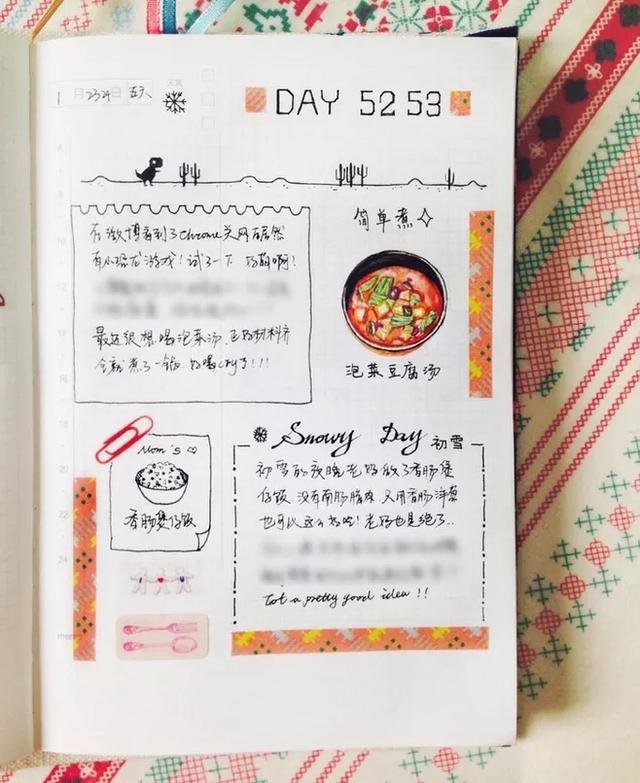 1月23 24日 五六
天气
DAY 52 53
在微博看到了Chrome关网居然
有小恐龙游戏!试了一下 巧萌啊!
最近很想喝泡菜汤 正好材料齐
全就煮了一锅 好喝cry了!!!
简单煮
泡菜豆腐汤
Mom's
香肠煲仔饭
Snowy Day 初雪
初雪的夜晚老妈做了香肠煲
仔饭 没有南肠腊肉 只用香肠洋葱
也可以这么好吃!老妈也是绝了..
Got a pretty good idea !!
memo